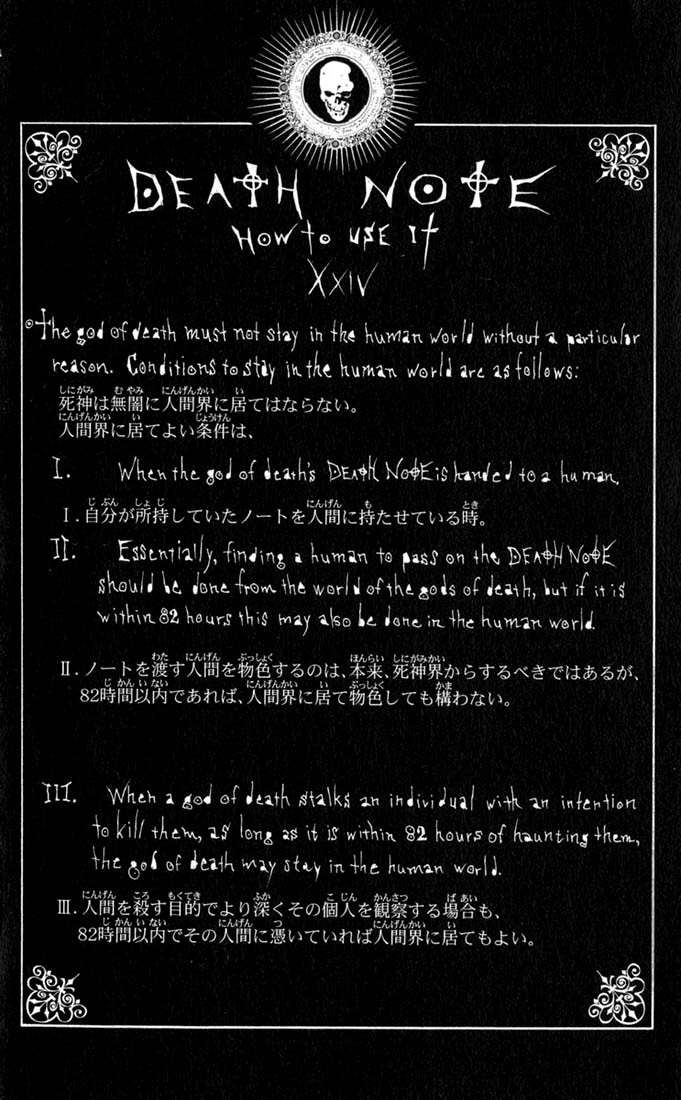 DEATH NOTE
HOW to USE It
XXIV
The god of death must not stay in the human world without a particular
reason. Conditions to stay in the human world are as follows:
死神は無闇に人間界に居てはならない。
人間界に居てよい条件は、
I. When the god of death's DEATH NOTE is handed to a human.
Ⅰ. 自分が所持していたノートを人間に持たせている時。
II. Essentially, finding a human to pass on the DEATH NOTE
should be done from the world of the gods of death, but if it is
within 82 hours this may also be done in the human world.
Ⅱ. ノートを渡す人間を物色するのは、本来、死神界からするべきではあるが、
82時間以内であれば、人間界に居て物色しても構わない。
III. When a god of death stalks an individual with an intention
to kill them, as long as it is within 82 hours of haunting them,
the god of death may stay in the human world.
Ⅲ. 人間を殺す目的でより深くその個人を観察する場合も、
82時間以内でその人間に憑いていれば人間界に居てもよい。